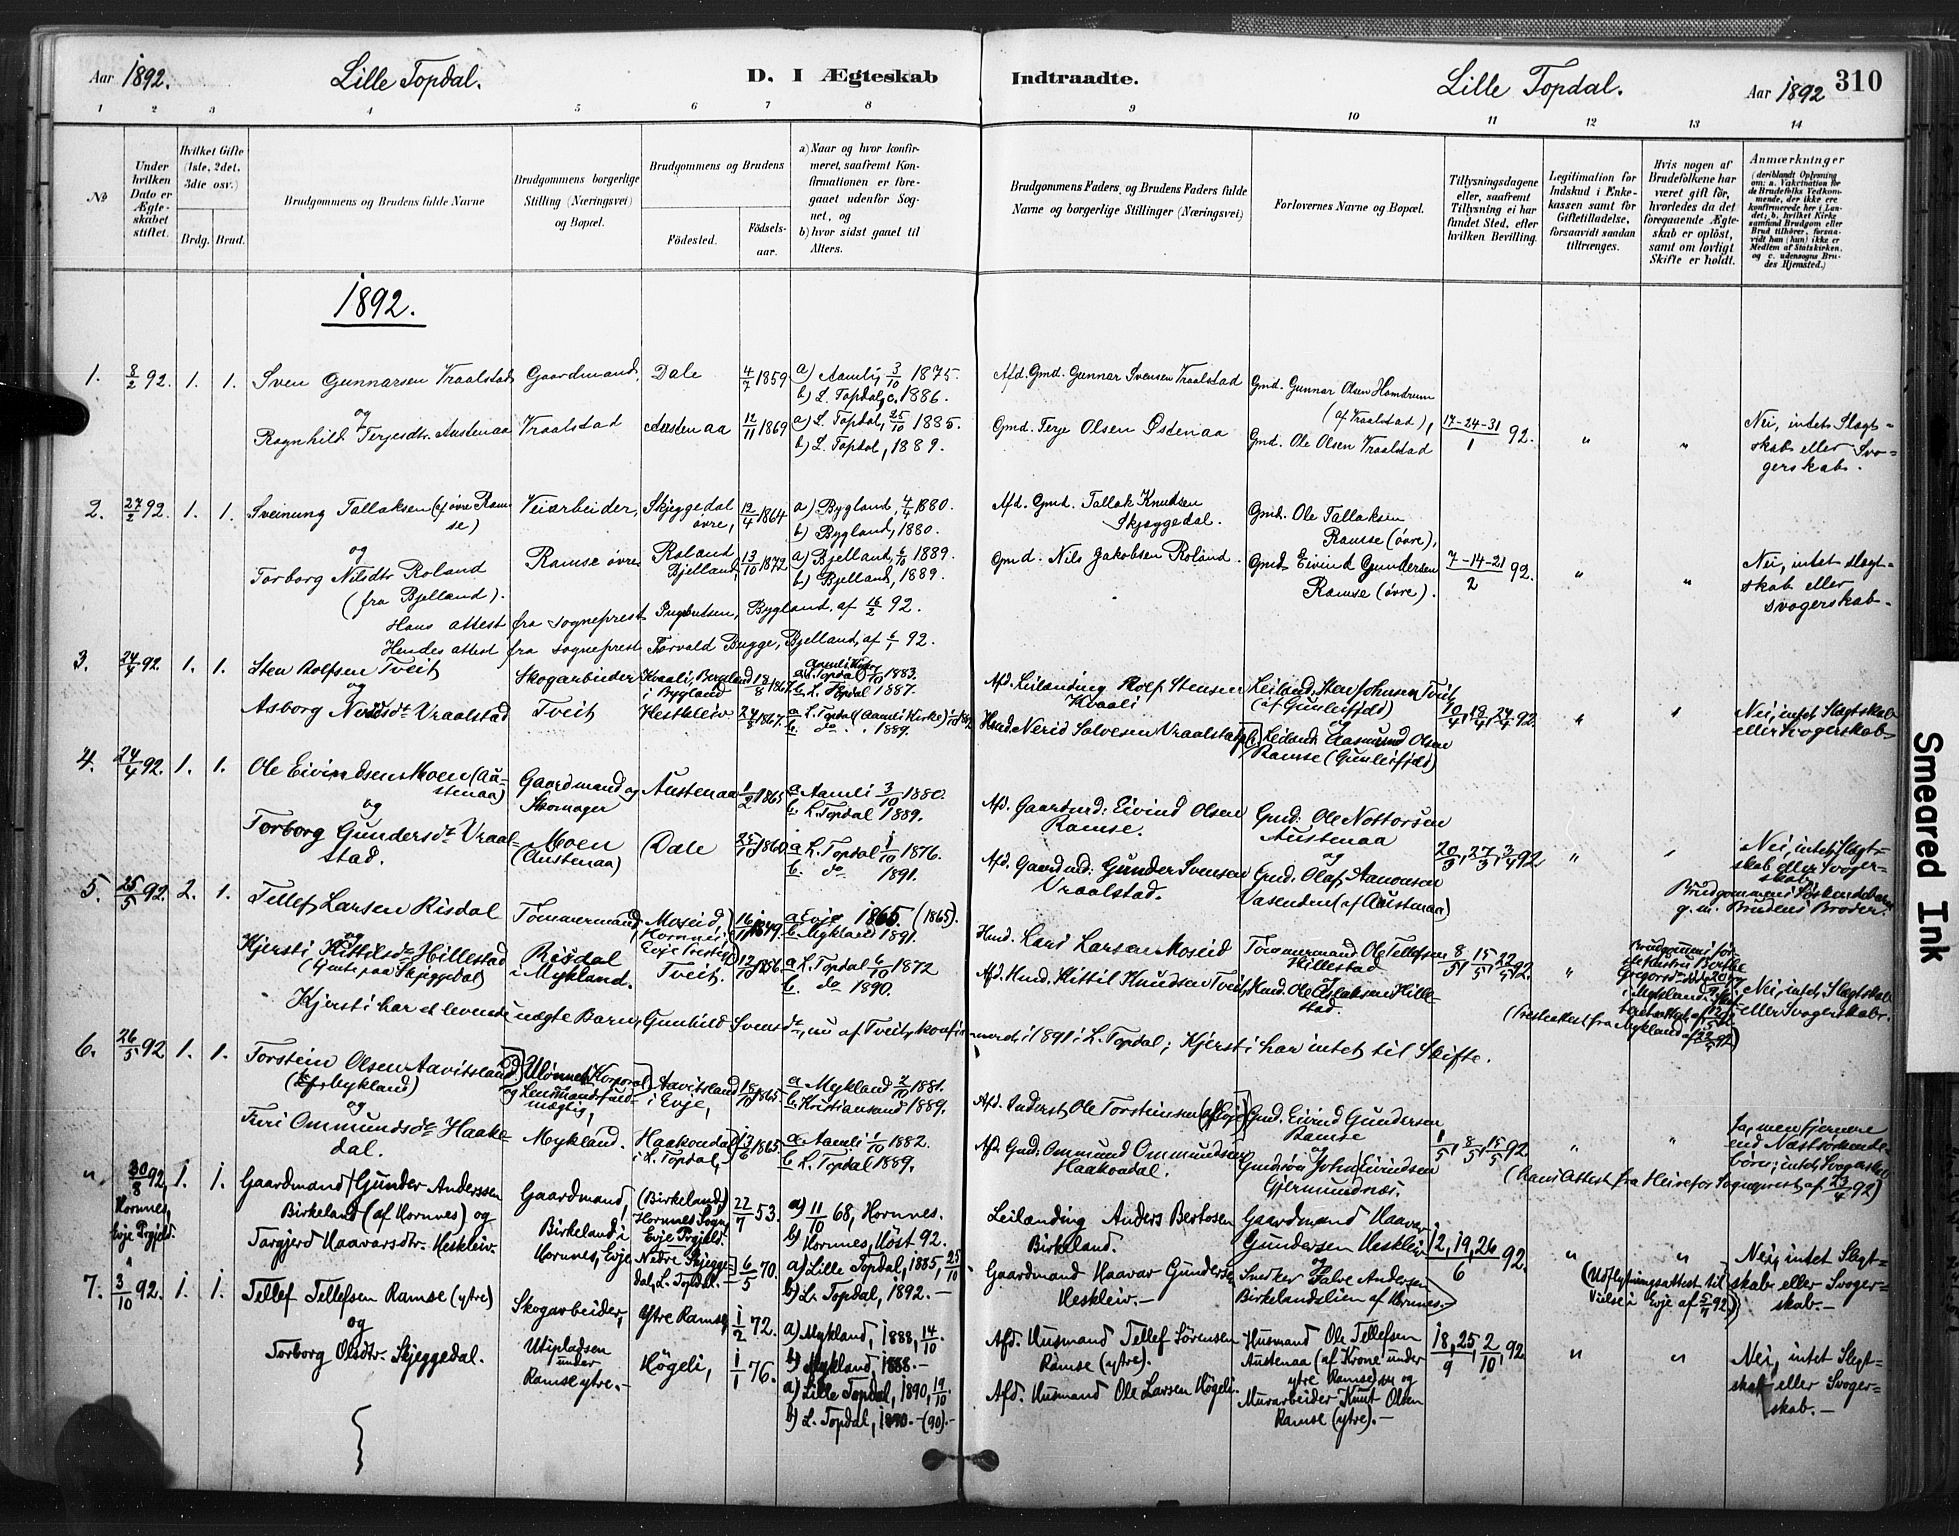 Aar 1892. Lille Topdal. D. I Ægteskab Indtraadte. Lille Topdal. Aar 1892 310
1 2 3 4 5 6 7 8 9 10 11 12 13 14
No
Under hvilken Dato er Ægteskabet stiftet.
Hvilket Gifte (1ste, 2det, 3die osv.)
Brdg. Brud.
Brudgommens og Brudens fulde Navne
Brudgommens borgerlige Stilling (Næringsvei) og Bopæl.
Brudgommens og Brudens
Fødested. Fødsels-aar.
a) Naar og hvor konfirmeret, saafremt Konfirmationen er foregaaet udenfor Sognet, og
b) hvor sidst gaaet til Alters.
Brudgommens Faders, og Brudens Faders fulde Navne og borgerlige Stillinger (Næringsvei)
Forlovernes Navne og Bopæl.
Tillysningsdagene eller, saafremt Tillysning ei har fundet Sted, efter hvilken Bevilling.
Legitimation for Indskud i Enkekassen samt for Giftetilladelse, forsaavidt saadan tiltrænges.
Hvis nogen af Brudefolkene har været gift før, hvorledes da det foregaaende Ægteskab er opløst, samt om lovligt Skifte er holdt.
Anmærkninger
(deriblandt Oplysning om: a. Vakcination for de Brudefolks Vedkommende, der ikke ere konfirmerede her i Landet; b. hvilket Kirkesamfund Brudgom eller Brud tilhører, forsaavidt han (hun) ikke er Medlem af Statskirken, og c. udensogns Brudes Hjemsted.)
1892.
1. 8/2 92. 1. 1. Sven Gunnarsen Vraalstad Gaardmand, Dale 4/7 1859 a) Aamli, 3/10 1875. Afd. Gmd. Gunnar Svensen Vraalstad Gmd. Gunnar Olsen Homdrum
b) L. Topdal, c. 1886. (af Vraalstad),
og
Ragnhild Terjesdtr. Austenaa Vraalstad Austenaa 12/11 1869 a) L. Topdal, 25/10 1885. Gmd. Terje Olsen Østenaa Gmd. Ole Olsen Vraalstad 17-24-31/1 92. " " Nei, intet Slægt-
b) L. Topdal, 1889. skab eller Svo-
gerskab.
2. 27/2 92. 1. 1. Sveinung Tallaksen (af øvre Ram- Veiarbeider, Skjeggedal 12/4 1864 a) Bygland, 4/4 1880. Afd. Gmd. Tallak Knudsen Gmd. Ole Tallaksen
se) øvre, b) Bygland, 1880. Skjeggedal. Ramse (øvre),
og
Torborg Nilsdtr Roland Ramse øvre Roland 13/10 1872 a) Bjelland, 6/10 1889. Gmd. Nils Jakobsen Roland. Gmd. Eivind Gundersen 7-14-21/2 92. " " Nei, intet Slægt-
(fra Bjelland). Bjelland, b) Bjelland, 1889. Ramse (øvre). skab eller
svogerskab.
Hans attest fra sogneprest Bygland, af 16/2 92.
Hendes attest fra sogneprest Torvald Bugge, Bjelland, af 6/1 92.
3. 24/4 92. 1. 1. Sten Rolfsen Tveit Skogarbeider Kvaali, Bygland 18/8 1867 a. L. Topdal /10 1883. Afd. Leilænding Rolf Stensen Leiland. Sten Johnsen Tveit
i Bygland b. L. Topdal 1887. Kvaali (af Gunleifjds)
og og
Asborg Neridsdtr Vraalstad Tveit Hestkleiv 24/8 1867. a. L. Topdal (Aamli Kirke) b. do. 1889. Husmd. Nerid Salvesen Vraalstad Leiland. Aasmund Olsen 10/4, 19/4, 24/4 92. " " Nei, intet Slægtskab
Ramse (Gunleifjds) eller Svogerskab
4. 24/4 92. 1. 1. Ole Eivindsen Moen (Au- Gaardmand og Austenaa 1/2 1865 a. Aamli 3/10 1880. Afd. Gaardmd: Eivind Olsen Gmd: Ole Nottorsen
stenaa) Skomager b. L. Topdal 1889. Ramse. Austenaa
og og
Torborg Gundersdtr Vraal- Moen Dale 25/10 1860 a L. Topdal 1/10 1876. Afd. Gaardmd: Gunder Svensen Gmd. Olaf Aanonsen 20/3, 27/3, 3/4 92 " " Nei, intet Slægt-
stad. (Austenaa) b. do 1891. Vraalstad. Vasenden (af Austenaa) skab eller Svoger-
skab.
Brudgommens Søskendebarn
g. m. Brudens Broder.
5. 25/5 92. 2. 1. Tellef Larsen Risdal Tømmermand, Moseid, 16/11 1849. a Evje 1865 (1865). Husmd. Lars Larsen Moseid Tømmermand Ole Tellefsen
Hornnes, b. Mykland 1891. Hillestad
og Evje Præstegj.
Kjersti Kittilsdtr Hillestad Risdal Tveit 12/10 1856. a. L. Topdal 6/10 1872 Afd. Husmd. Kittil Knudsen Tveit, Husmd. Ole Aslaksen Hille- 8/5, 15/5, 22/5 92. " Nei, intet Slægtskab
(Gmts. paa Skjeggedal) i Mykland. b. do 1890. stad. eller Svogerskab.
Kjersti har et levende uægte Barn, Gunhild Svensdtr, nu af Tveit, konfir- meret i 1891 i L. Topdal; Kjersti har intet til Skifte. (Presteattest fra Mykland af 92)
6. 26/5 92 1. 1. Torstein Olsen Aavitsland Korporal Aavitsland 18/10 1865 a Mykland 2/10 1881. Afd. Inderst Ole Torsteinsen (af Evje) Gmd. Eivind Gundersen
(af Mykland) og Lensmandsfuld- i Evje, b. Kristiansand 1889. Ramse
mægtig,
og
Guri Ommundsdtr Haake- Mykland. Haakondal 13/6 1865. a. Aamli 1/10 1882. Afd. Gmd: Ommund Ommundsen og 1/5, 8/5, 15/5 92 " " Ja, men fjernere
dal. i L. Topdal, b. L. Topdal 1889. Haakondal. John Eivindsen end Næstsødskende-
Gjermundnes. børn; intet Svogerskab
(Hans Attest fra Sognepræst, af 23/4 92)
" 30/8 92, 1. 1. Gaardmand Gunder Anderssen Gaardmand, (Birkeland) 22/7 53. a) 11/10 68, Hornnes. Leilænding Anders Bertosen Gaardmand Haavar
Hornnes, Birkeland (af Hornnes) og Birkeland i Hornnes Sogn, b) Hornnes, Høst 92. Birkeland. Gundersen Heskleiv
Evje Prgjeld. Evje Prgjeld.
Targjerd Haavarsdtr. Heskleiv. Hornnes, Evje Nedre Skjegge- 6/5 70. a) Lille Topdal, 1885, 25/10 Gaardmand Haavar Gundersen og Snedker Salve Andersen 12, 19, 26/6 92 " " Nei, intet Slegt-
dal, L. Topdal. b) L. Topdal, 1892. — Heskleiv. — Birkelandalien af Hornnes. — (Udflytningsattest til skab eller Svoger-
Vielse i Evje af 5/7 92) skab. —
7. 3/10 92. 1. 1. Tellef Tellefsen Ramse (ytre) Skogarbeider, Ytre Ramse, 1/2 72. a) Mykland, 1888, 14/10 Afd. Husmand Tellef Sørensen Husmand Ole Tellefsen
b) Mykland, 1888. — Ramse (ytre). Austenaa (af Krone under
og Utipladsen ytre Ramse) og
Torborg Olsdtr. Skjeggedal. under Høgeli, 1/1 76. a) Lille Topdal, 1890, 19/10 Afd. Husmand Ole Larsen Høgeli. Murarbeider Knut Olsen 18, 25/9, 2/10, 92 " " Nei, intet Slegt-
Ramse ytre. — b) L. Topdal, 1890. — (90). — Ramse (ytre). — skab eller Svoger-
skab. —
Smeared Ink